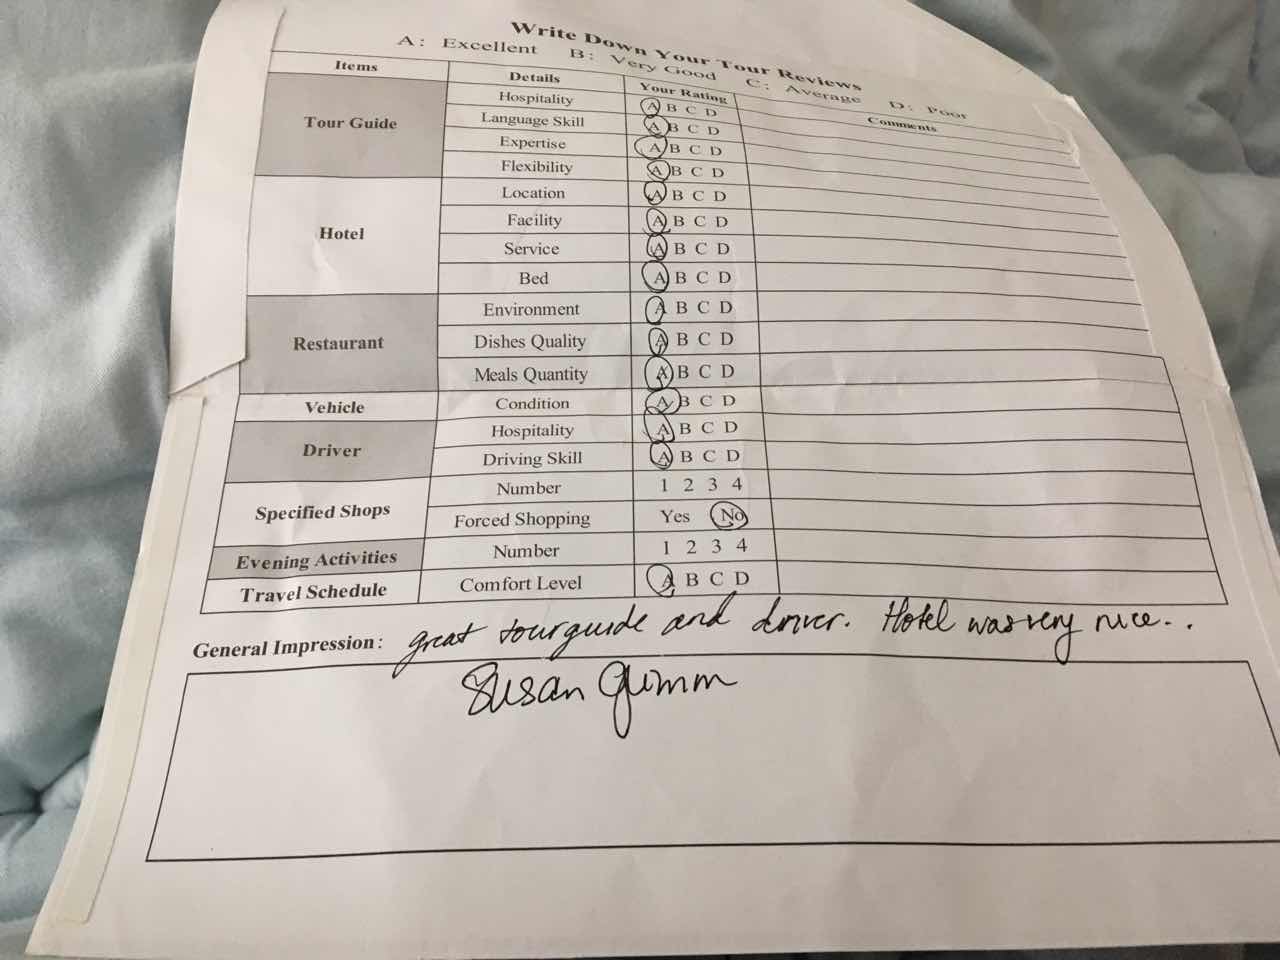 Write Down Your Tour Reviews
A: Excellent B: Very Good C: Average D: Poor
Items Details Your Rating Comments
Tour Guide
Hospitality A B C D
Language Skill A B C D
Expertise A B C D
Flexibility A B C D
Hotel
Location A B C D
Facility A B C D
Service A B C D
Bed A B C D
Restaurant
Environment A B C D
Dishes Quality A B C D
Meals Quantity A B C D
Vehicle Condition A B C D
Driver
Hospitality A B C D
Driving Skill A B C D
Specified Shops
Number 1 2 3 4
Forced Shopping Yes No
Evening Activities Number 1 2 3 4
Travel Schedule Comfort Level A B C D
General Impression: great tour guide and driver. Hotel was very nice..
Susan Glimm